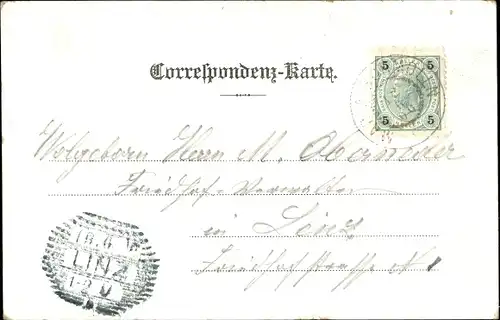 Correspondenz-Karte.
5 5
5 5
Wolgeborn Herrn M. Obermeder
Friedhof-Verwalter
in Linz
Friedhofstrasse N 1
18.6
LINZ